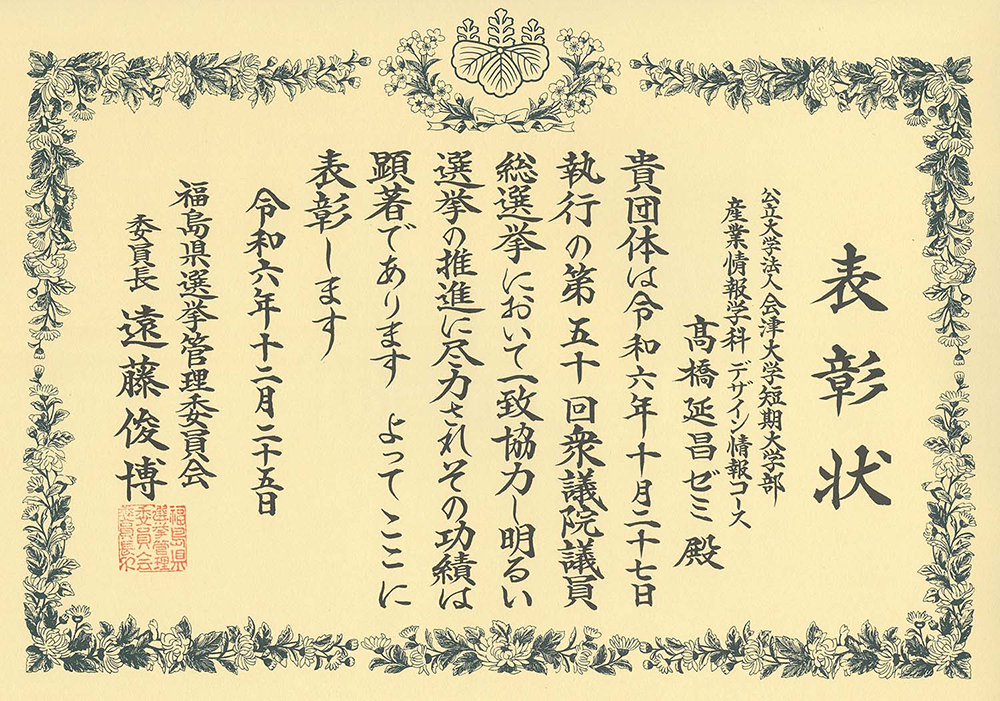 表彰状
公立大学法人会津大学短期大学部
産業情報学科 デザイン情報コース
髙橋延昌ゼミ 殿
貴団体は令和六年十月二十七日
執行の第五十回衆議院議員
総選挙において一致協力し明るい
選挙の推進に尽力されその功績は
顕著であります よってここに
表彰します
令和六年十二月二十五日
福島県選挙管理委員会
委員長 遠藤俊博
福島県
選挙管理
委員会
委員長印